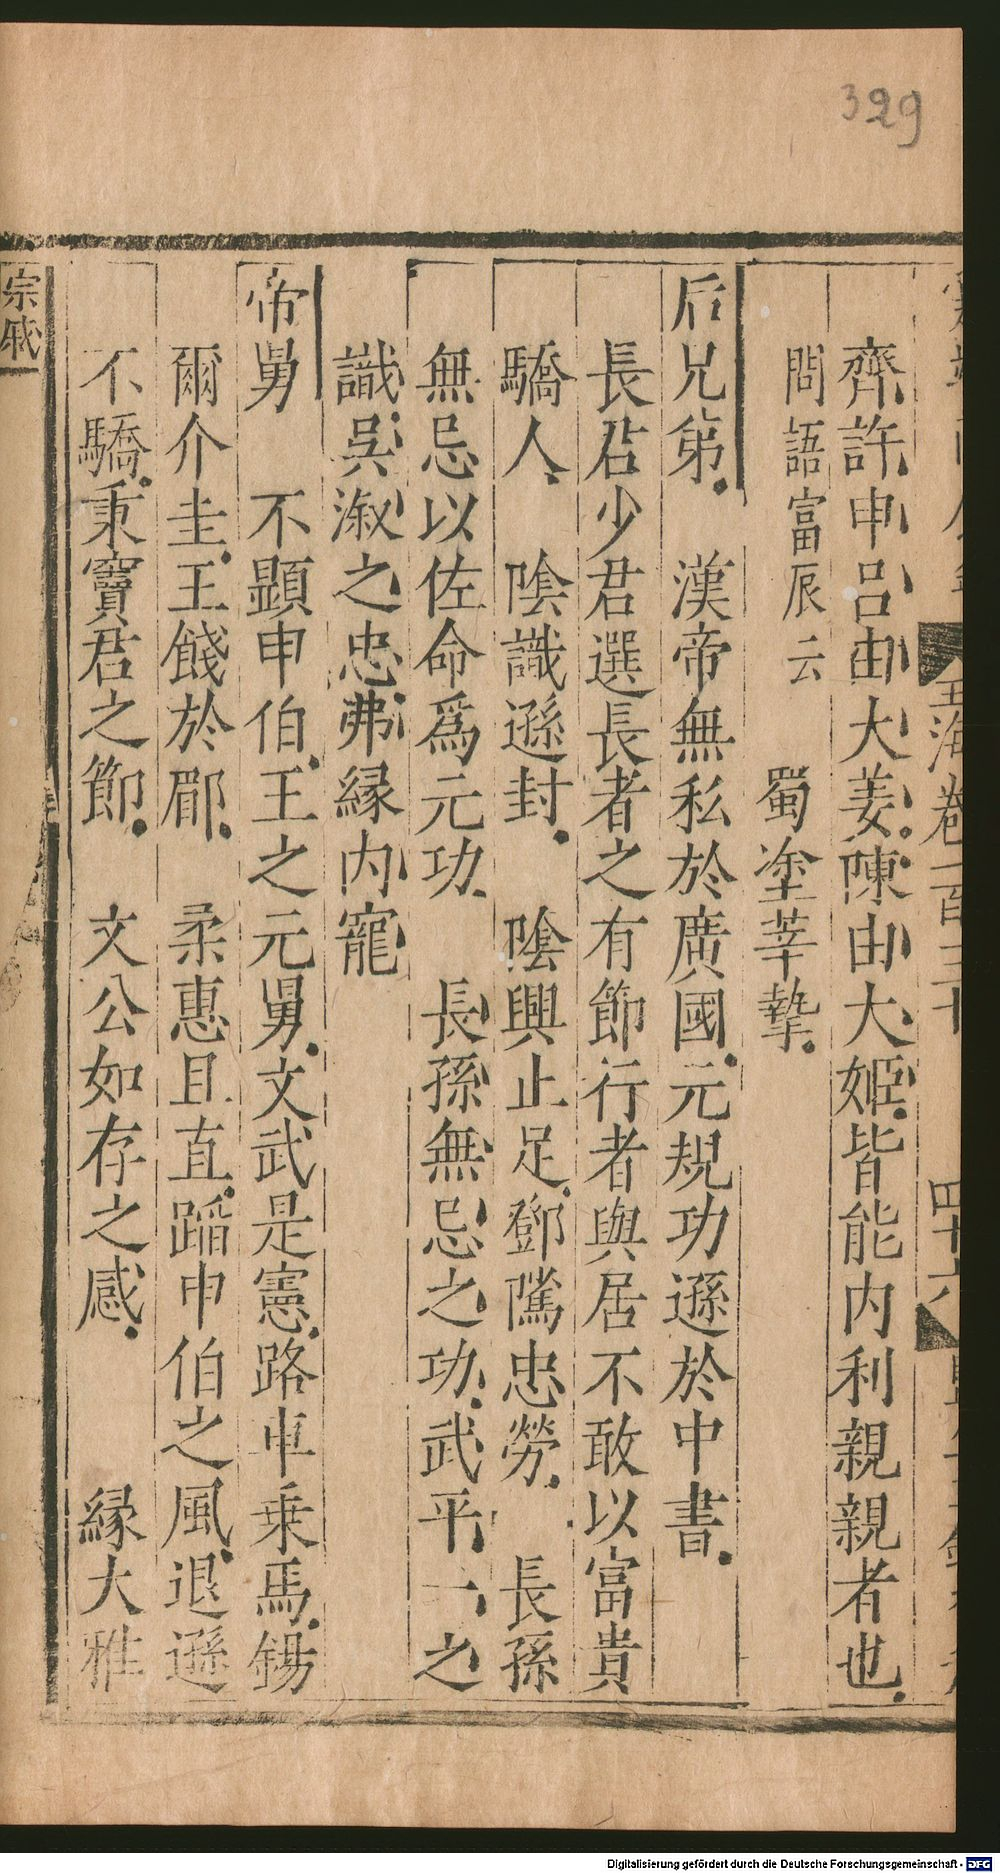 329
玉海卷一百三十 四十六
齊許申呂由大姜陳由大姬皆能内利親親者也
問語富辰云 蜀塗莘摯
后兄弟 漢帝無私於廣國元規功遜於中書
長君少君選長者之有節行者與居不敢以富貴
驕人 陰識遜封 陰興止足鄧隲忠勞 長孫
無忌以佐命爲元功 長孫無忌之功武平一之
識吳溆之忠弗緣内寵
帝舅 不顯申伯王之元舅文武是憲路車乗馬錫
爾介圭王餞於郿 柔惠且直蹈申伯之風退遜
不驕秉竇君之節 文公如存之感 緣大雅
宗戚
Digitalisierung gefördert durch die Deutsche Forschungsgemeinschaft - DFG